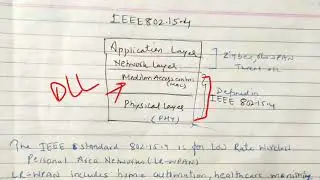 IEEE 802.15.4
Application Layer
Network Layer
Zigbee, 6LoWPAN
Thread etc.
Medium Access control
(MAC)
Physical Layer
(PHY)
Defined in
IEEE 802.15.4
DLL
The IEEE 8 standard 802.15.4 is for Low Rate Wireless
Personal Area Networks (LR-WPAN)
LR-WPAN includes home automation, healthcare monitoring